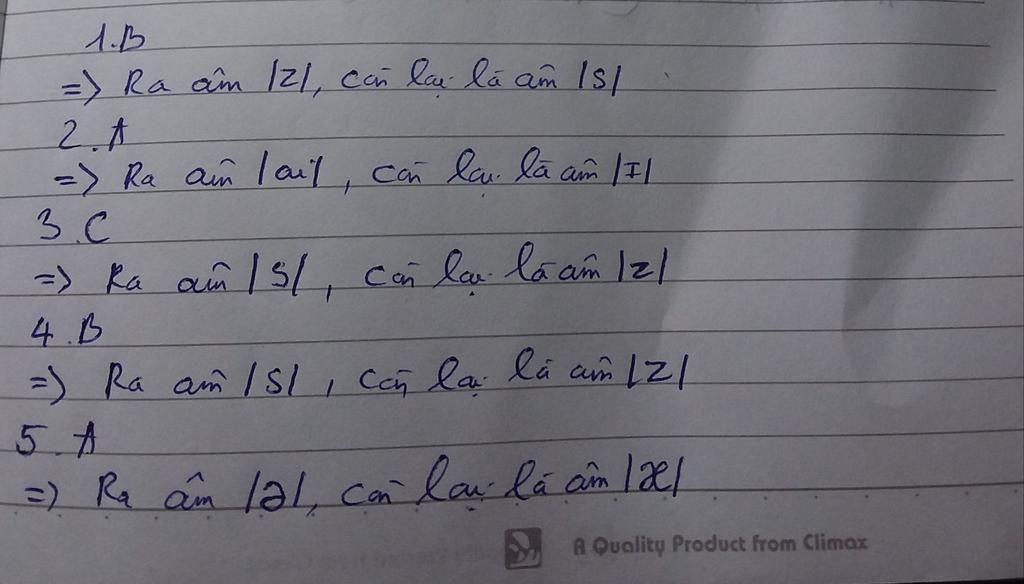 1.B
=> Ra âm /z/, còn lại là âm /s/
2.A
=> Ra âm /ai/, còn lại là âm /I/
3.C
=> Ra âm /s/, còn lại là âm /z/
4.B
=> Ra âm /s/, còn lại là âm /z/
5.A
=> Ra âm /ə/, còn lại là âm /æ/
A Quality Product from Climax